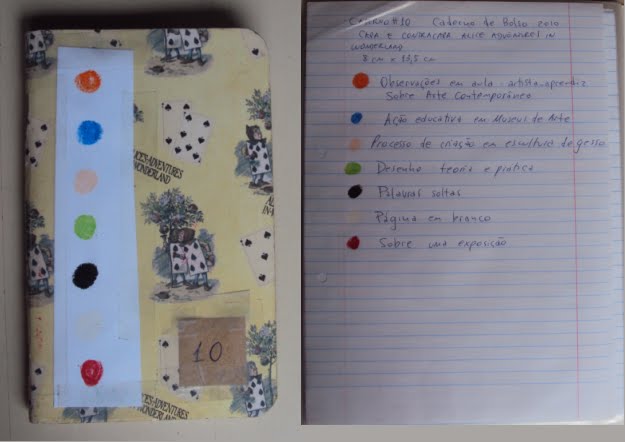 ALICE'S ADVENTURES
WONDERLAND
10
ALICE'S ADVENTURES
WONDERLAND
CADERNO #10 Caderno de Bolso 2010
CAPA E CONTRACAPA ALICE ADVENTURES IN
WONDERLAND
8 cm x 13,5 cm
Observações em aula: artista aprendiz
Sobre Arte Contemporânea
Ação educativa em Museus de Arte
Processo de criação em escultura de gesso
Desenho teoria e prática
Palavras soltas
Página em branco
Sobre uma exposição